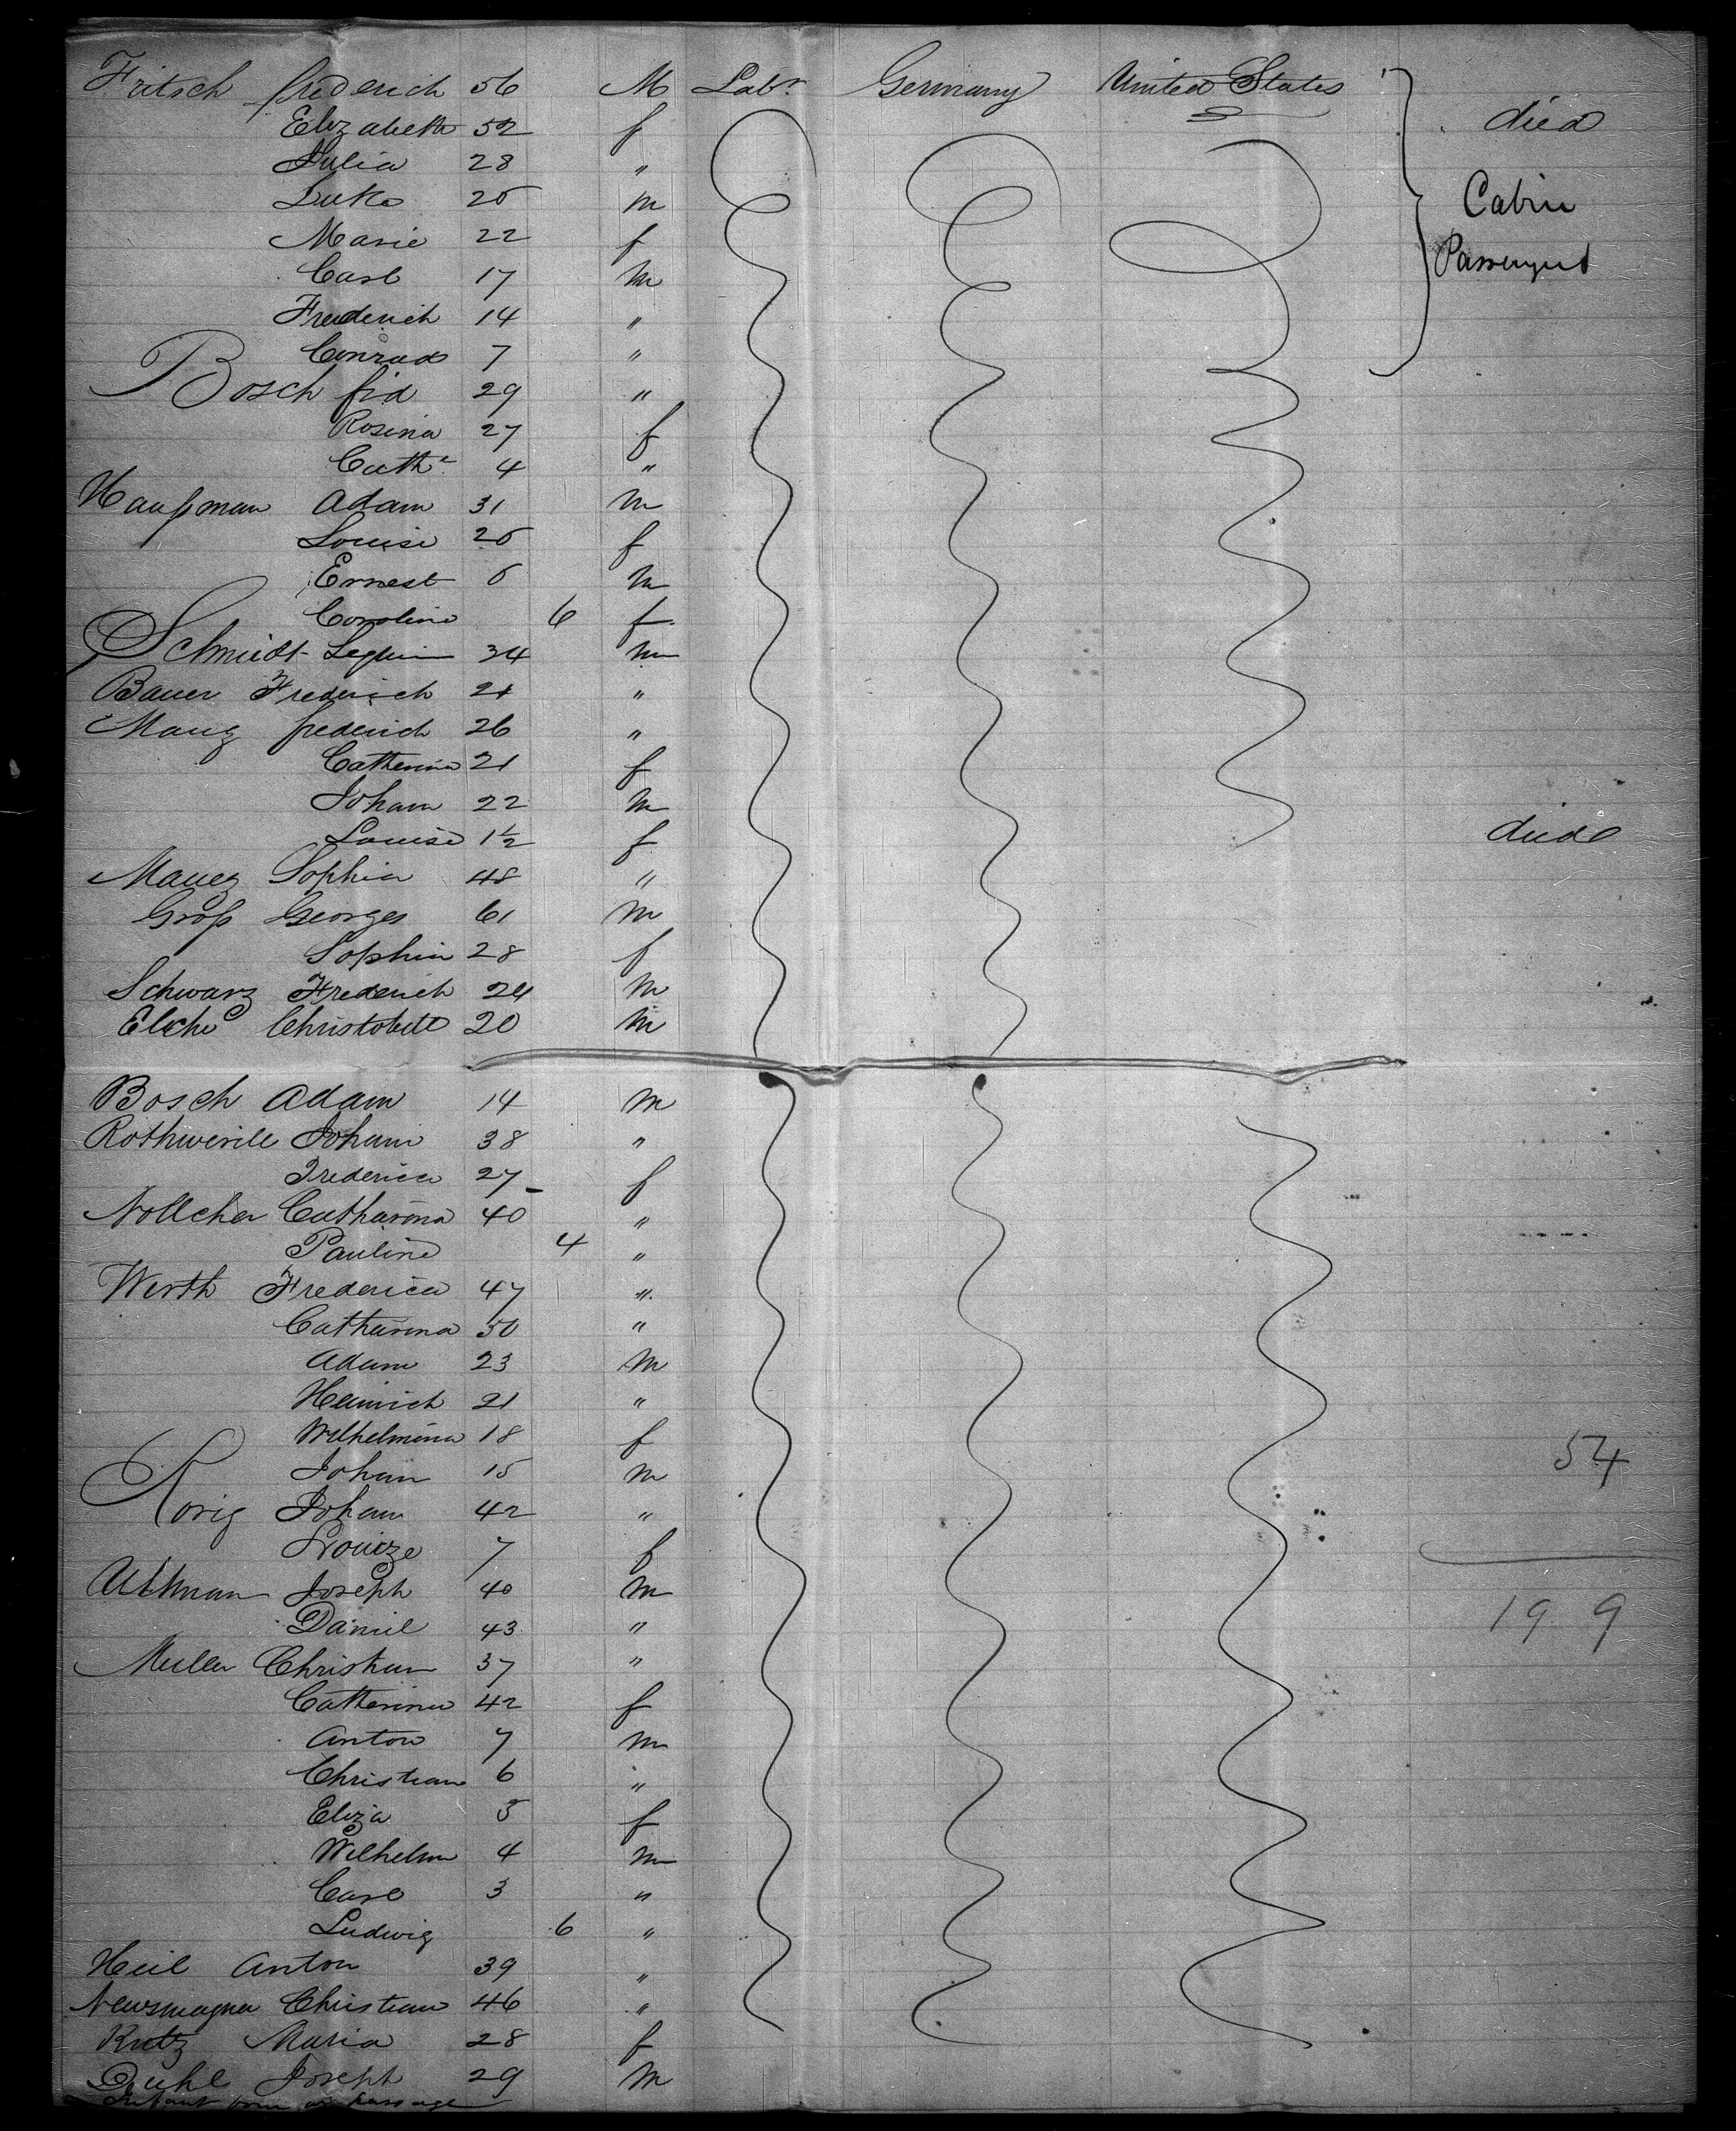 Fritsch frederich 56 M Labr Germany United States
Elizabeth 52 f died
Julia 28 "
Luke 25 m Cabin
Marie 22 f Passengers
Carl 17 m
Frederich 14 "
Conrad 7 "
Bosch fid 29 "
Rosina 27 f
Cathe 4 "
Haußman Adam 31 m
Louise 25 f
Ernest 5 m
Caroline 6 f
Schmidt 34 m
Bauer Frederich 21 "
Mang frederich 26 "
Catherina 21 f
Joham 22 m
Louise 1½ f died
Mauez Sophia 48 "
Groß Georges 61 m
Sophia 28 f
Schwarz Frederich 24 m
Elche 20 m
Bosch Adam 14 m
Johann 38 "
Frederica 27 f
Nollcher Catharina 40 "
Pauline 4 "
Werth Frederica 47 "
Catharina 50 "
Adam 23 m
Heinrich 21 "
Wilhelmina 18 f 54
Johan 15 m
Korig Joham 42 "
Louize 7 f
Altman Joseph 40 m
Daniel 43 " 19 9
Muller Christian 37 "
Catherina 42 f
Anton 7 m
Christian 6 "
Eliza 5 f
Wilhelm 4 m
Carl 3 "
Ludwig 6 "
Heil Anton 39 "
Christian 46 "
Kutz Maria 28 f
Duhl Joseph 29 m
Infant born on passage